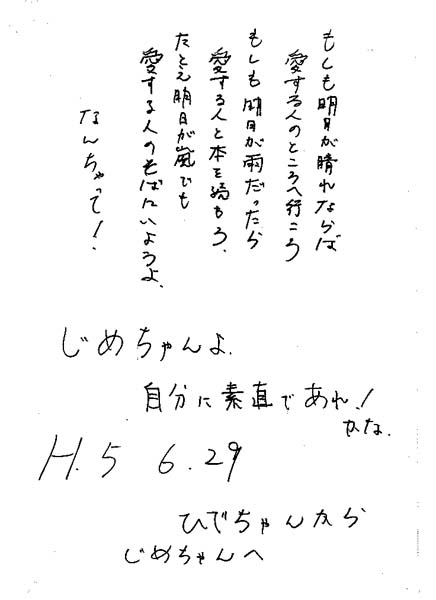 もしも明日が晴れならば
愛する人のところへ行こう
もしも明日が雨だったら
愛する人と本を読もう、
たとえ明日が嵐でも
愛する人のそばにいようよ、
なんちゃって!
じめちゃんよ、
自分に素直であれ!
かな、
H.5 6.29
ひでちゃんから
じめちゃんへ